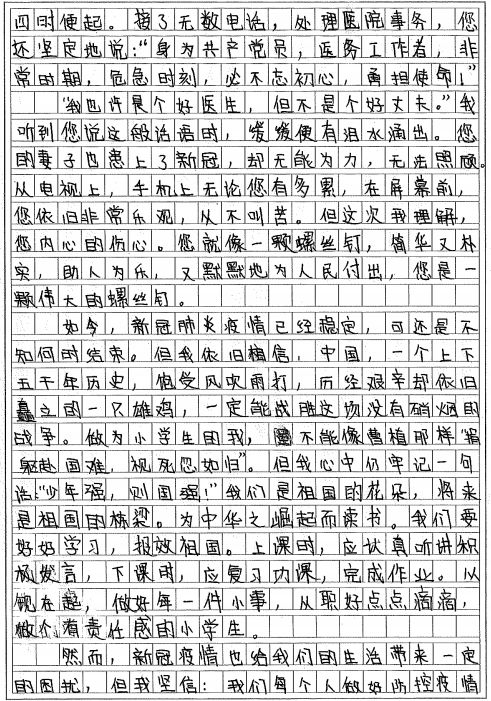 四时便起。接了无数电话，处理医院事务，您
还坚定地说：“身为共产党员，医务工作者，非
常时期，危急时刻，必不忘初心，勇担使命！”
“我也许是个好医生，但不是个好丈夫。”我
听到您说这般话语时，缓缓便有泪水涌出。您
的妻子也患上了新冠，却无能为力，无法照顾。
从电视上，手机上无论您有多累，在屏幕前，
您依旧非常乐观，从不叫苦。但这次我理解，
您内心的伤心。您就像一颗螺丝钉，简华又朴
实，助人为乐，又默默地为人民付出，您是一
颗伟大的螺丝钉。
如今，新冠肺炎疫情已经稳定，可还是不
知何时结束。但我依旧相信，中国，一个上下
五千年历史，饱受风吹雨打，历经艰辛却依旧
矗立的一只雄鸡，一定能战胜这场没有硝烟的
战争。做为小学生的我，不能像曹植那样“捐
躯赴国难，视死忽如归”。但我心中仍牢记一句
话：“少年强，则国强！”我们是祖国的花朵，将来
是祖国的栋梁。为中华之崛起而读书。我们要
好好学习，报效祖国。上课时，应认真听讲积
极发言，下课时，应复习功课，完成作业。从
现在起，做好每一件小事，从职好点点滴滴，
做个有责任感的小学生。
然而，新冠疫情也给我们的生活带来一定
的困扰，但我坚信：我们每个人做好防控疫情